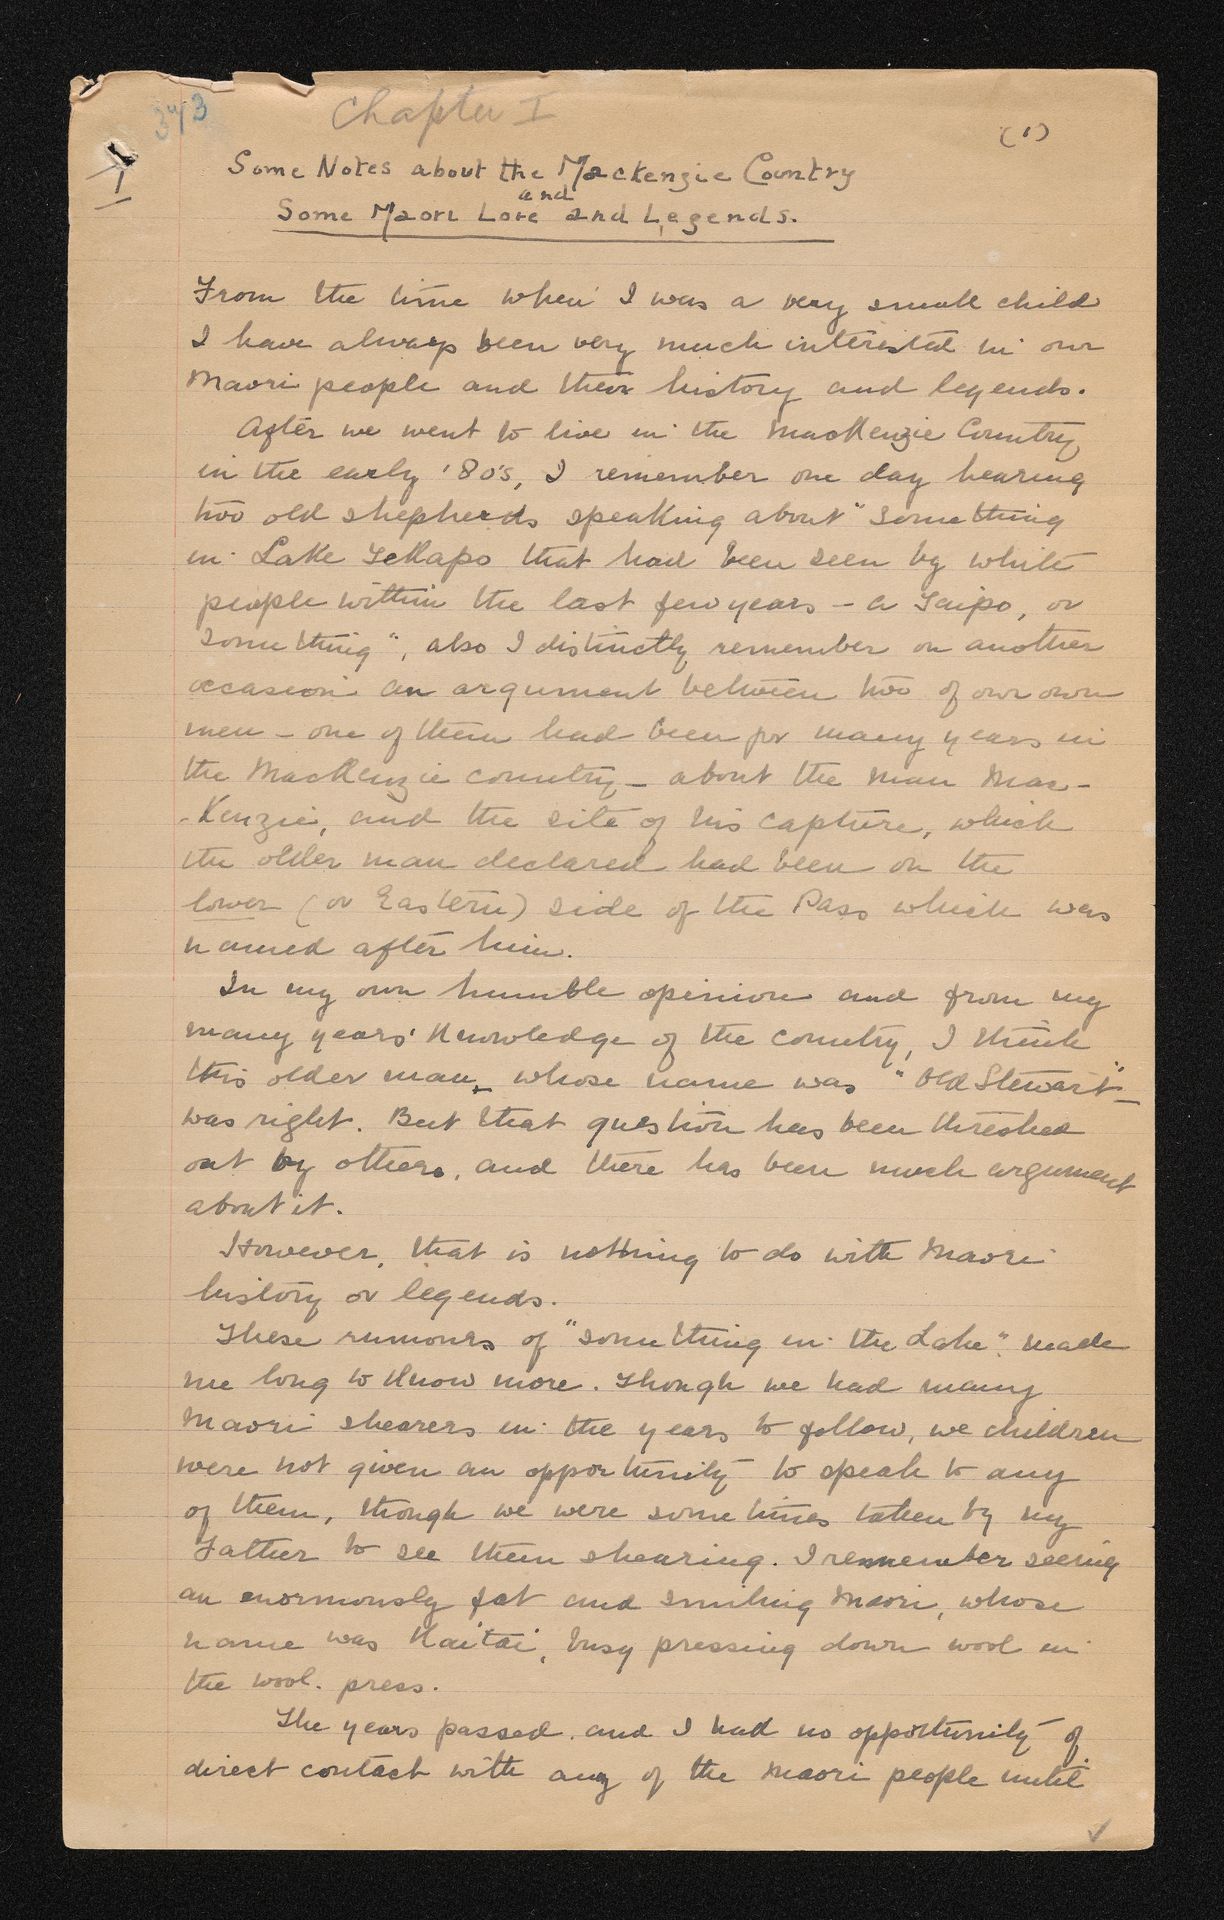 343
Chapter I
(1)
I
Some Notes about the Mackenzie Country
and
Some Maori Lore and Legends.
From the time when I was a very small child
I have always been very much interested in our
Maori people and their history and legends.
After we went to live in the MacKenzie Country
in the early '80's, I remember one day hearing
two old shepherds speaking about "something
in Lake TeKapo that had been seen by white
people within the last few years – a Taipo, or
something", also I distinctly remember on another
occasion an argument between two of our own
men – one of them had been for many years in
the MacKenzie country – about the man Mac-
-Kenzie, and the site of his capture, which
the older man declared had been on the
lower (or Eastern) side of the Pass which was
named after him.
In my own humble opinion and from my
many years' Knowledge of the country, I think
this older man – whose name was "Old Stewart" –
was right. But that question has been threshed
out by others, and there has been much argument
about it.
However, that is nothing to do with Maori
history or legends.
These rumours of "something in the Lake" made
me long to Know more. Though we had many
Maori shearers in the years to follow, we children
were not given an opportunity to speak to any
of them, though we were sometimes taken by my
Father to see them shearing. I remember seeing
an enormously fat and smiling Maori, whose
name was Kaitai, busy pressing down wool in
the wool. press.
The years passed. and I had no opportunity of
direct contact with any of the Maori people until